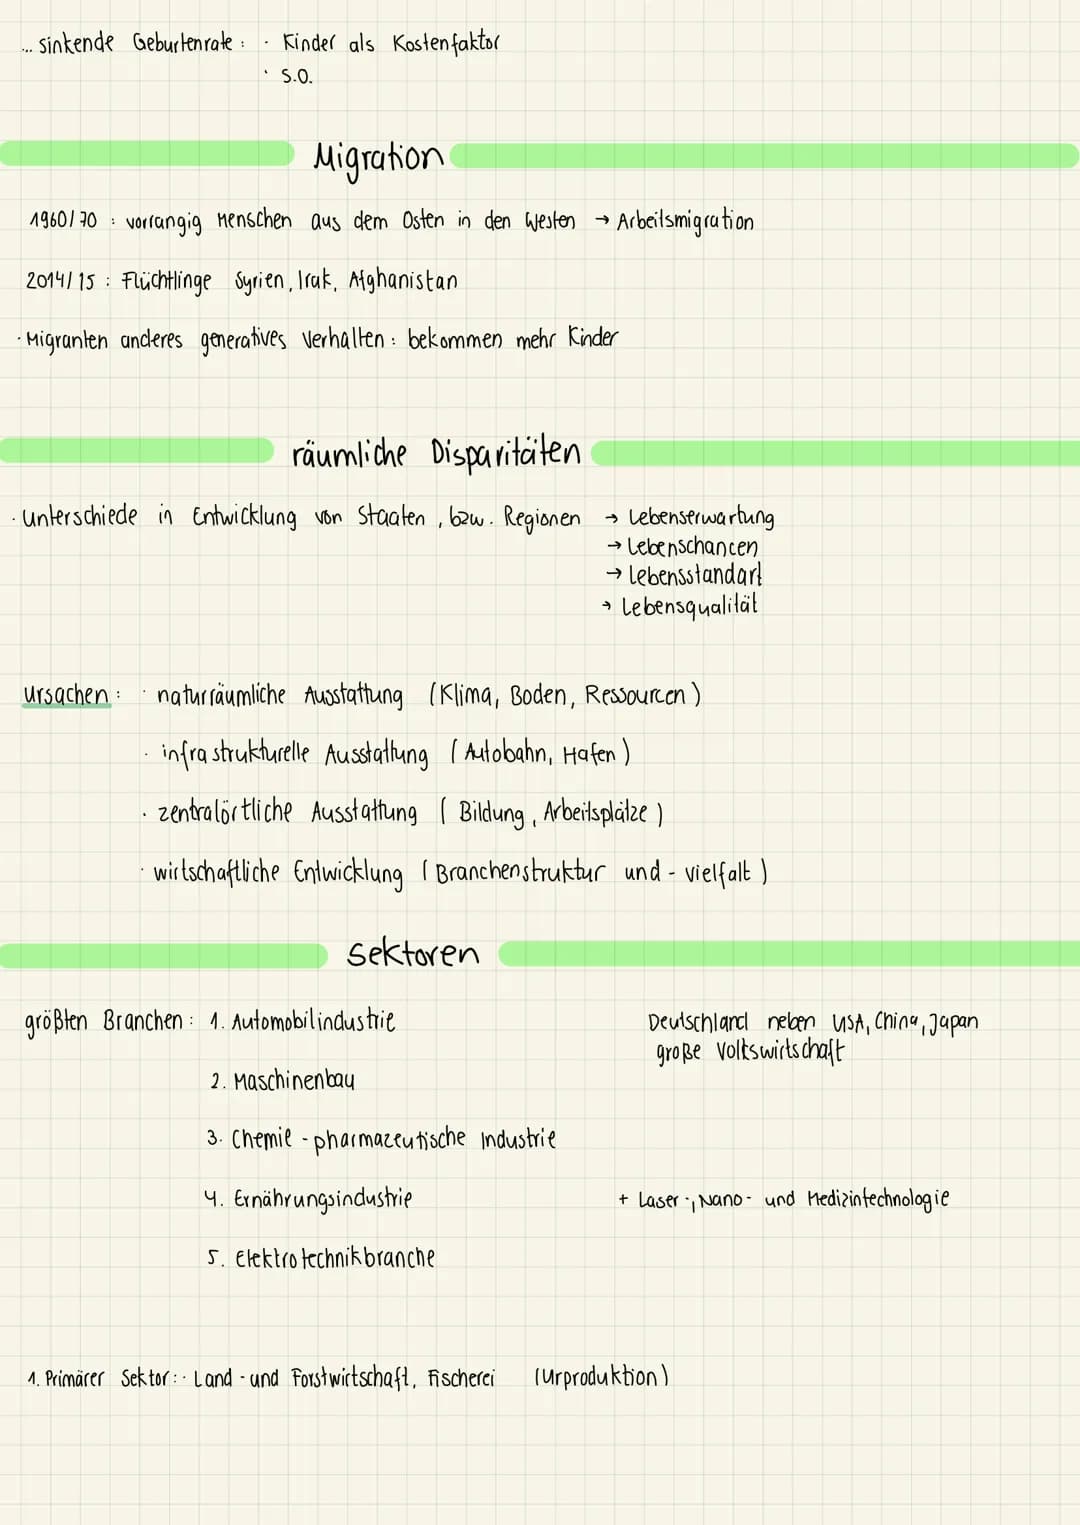 ... sinkende Geburtenrate : · Kinder als Kostenfaktor
· S.O.
Migration
1960/70 : vorrangig Menschen aus dem Osten in den Westen → Arbeitsmigration
2014/15 : Flüchtlinge Syrien, Irak, Afghanistan
· Migranten anderes generatives Verhalten : bekommen mehr Kinder
räumliche Disparitäten
· Unterschiede in Entwicklung von Staaten, bzw. Regionen → Lebenserwartung
→ Lebenschancen
→ Lebensstandart
→ Lebensqualität
Ursachen : · naturräumliche Ausstattung (Klima, Boden, Ressourcen)
· infrastrukturelle Ausstattung (Autobahn, Hafen)
· zentralörtliche Ausstattung (Bildung, Arbeitsplätze)
· wirtschaftliche Entwicklung (Branchenstruktur und -vielfalt)
Sektoren
größten Branchen : 1. Automobilindustrie
Deutschland neben USA, China, Japan
große Volkswirtschaft
2. Maschinenbau
3. Chemie - pharmazeutische Industrie
4. Ernährungsindustrie + Laser-, Nano- und Medizintechnologie
5. Elektrotechnikbranche
1. Primärer Sektor : · Land- und Forstwirtschaft, Fischerei (Urproduktion)